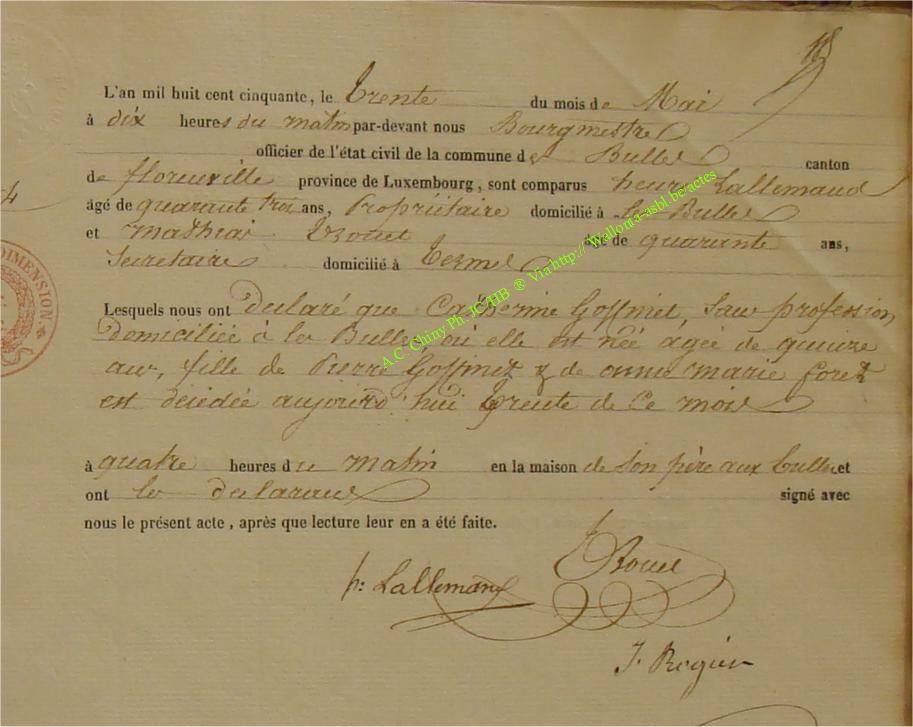 L'an mil huit cent cinquante, le trente du mois de Mai
à dix heures du matin par-devant nous Bourgmestre
officier de l'état civil de la commune de Bulles canton
de florenville province de Luxembourg, sont comparus henri Lallemand
âgé de quarante trois ans, Propriétaire domicilié à les Bulles
et mathias âgé de quarante ans,
Secretaire domicilié à termes
DIMENSION
Lesquels nous ont declaré que Catherine Goffinet, sans profession
domiciliée à les Bulles où elle est née agée de quinze
ans, fille de Pierre Goffinet & de anne marie foret
est décédée aujourd'hui trente de ce mois
à quatre heures du matin en la maison de son père aux bulles et
ont les declarans signé avec
nous le présent acte, après que lecture leur en a été faite.
h: Lallemand
J. Rogier
A.C Chiny Ph. JC HB ® Via http://wallonia-asbl.be/actes